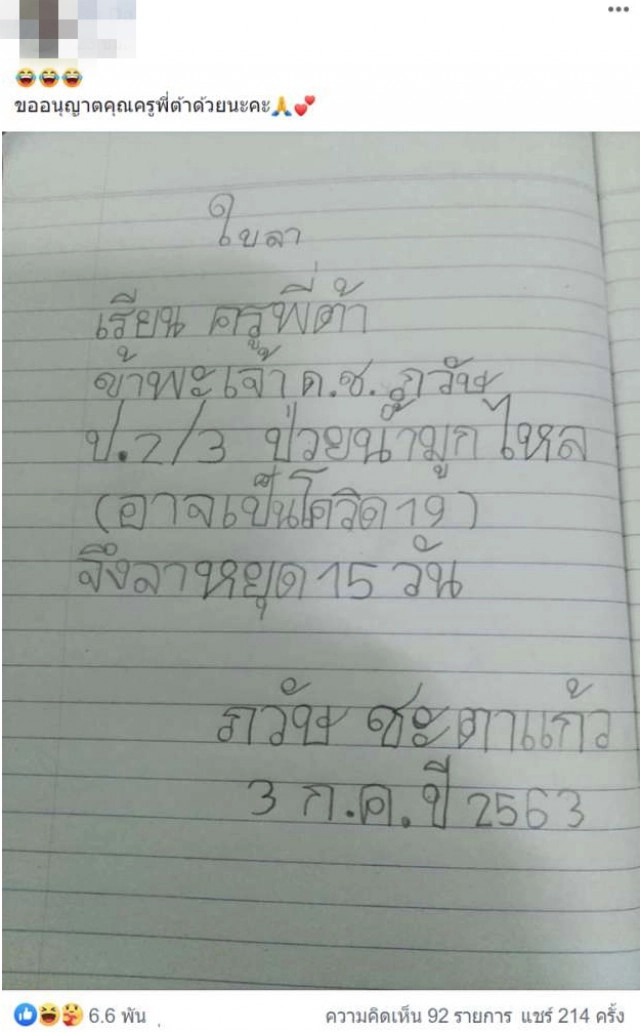 😂😂😂
ขออนุญาตคุณครูพี่ต้าด้วยนะคะ🙏💕
ใบลา
เรียน ครูพี่ต้า
ข้าพะเจ้า ด.ช. ภวัษ
ป.2/3 ป่วยน้ำมูกไหล
(อาจเป็นโควิด19)
จึงลาหยุด 15 วัน
ภวัษ ชะตาแก้ว
3 ก.ค. ปี 2563
6.6 พัน
ความคิดเห็น 92 รายการ แชร์ 214 ครั้ง